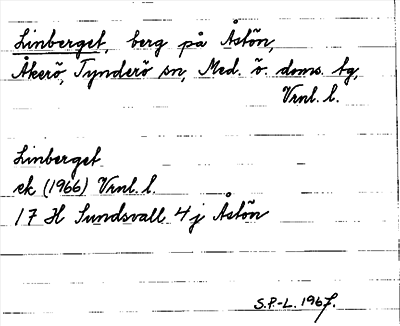 Linberget, berg på Åstön,
Åkerö, Tynderö sn, Med. ö. doms. tg,
Vrnl. l.
Linberget
ek (1966) Vrnl. l.
17 H Sundsvall 4 j Åstön
S.P.-L. 1967.